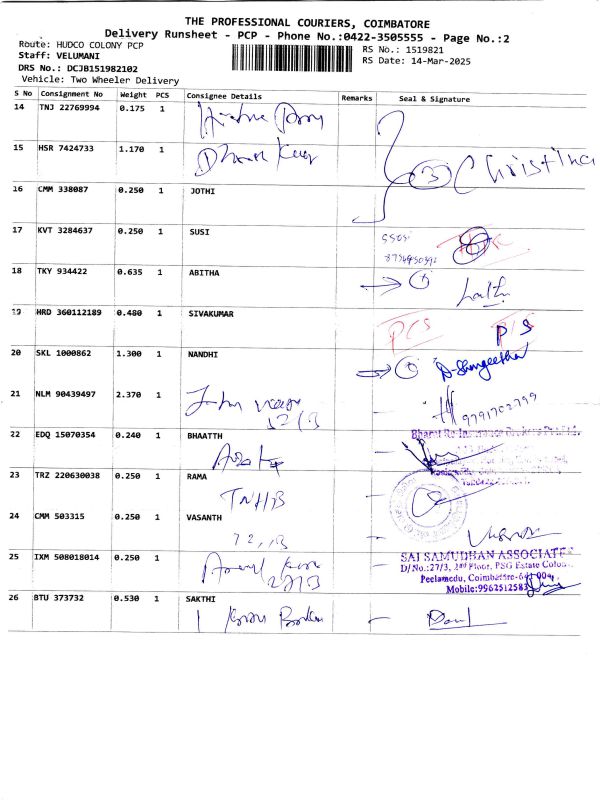 THE PROFESSIONAL COURIERS, COIMBATORE
Delivery Runsheet - PCP - Phone No.:0422-3505555 - Page No.:2
Route: HUDCO COLONY PCP
Staff: VELUMANI
DRS No.: DCJB151982102
Vehicle: Two Wheeler Delivery
RS No.: 1519821
RS Date: 14-Mar-2025
S No Consignment No Weight PCS Consignee Details Remarks Seal & Signature
14 TNJ 22769994 0.175 1
15 HSR 7424733 1.170 1 3 Christina
16 CMM 338087 0.250 1 JOTHI
17 KVT 3284637 0.250 1 SUSI
18 TKY 934422 0.635 1 ABITHA
19 HRD 360112189 0.480 1 SIVAKUMAR PCS
20 SKL 1000862 1.300 1 NANDHI D-Sangeetha
21 NLM 90439497 2.370 1 9791702799
22 EDQ 15070354 0.240 1 BHAATH
23 TRZ 220630038 0.250 1 RAMA
TNHB
24 CMM 503315 0.250 1 VASANTH
25 IXM 508018014 0.250 1
SAI SAMUDHAN ASSOCIATES
D/No.:27/3, 2nd Floor, PSG Estate Colony
Peelamedu, Coimbatore-641 004
Mobile:9962512583
26 BTU 373732 0.530 1 SAKTHI